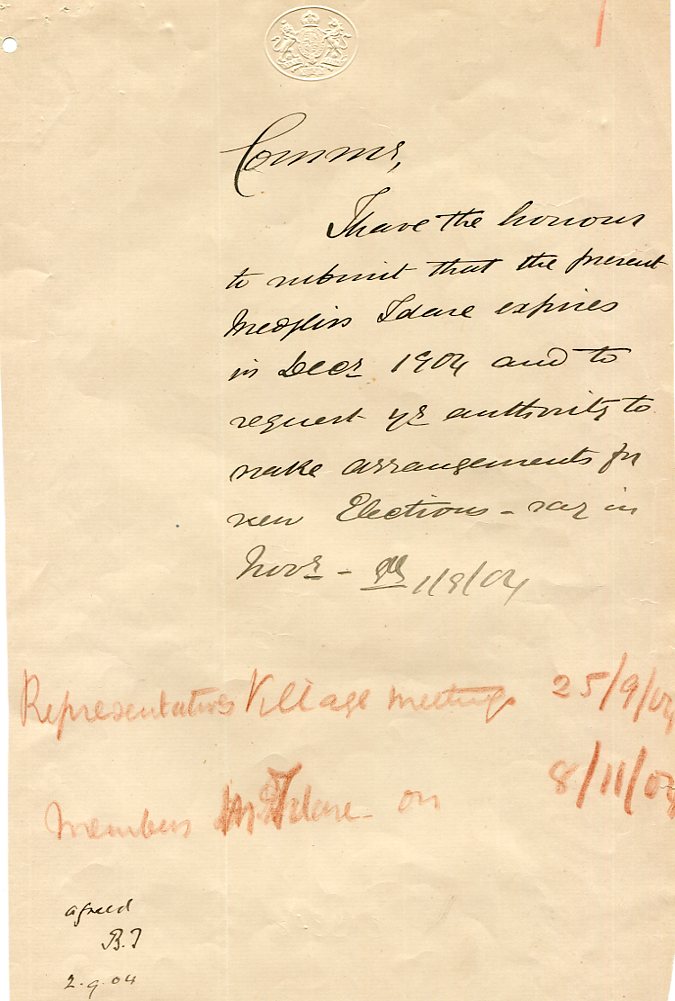 Commr,
I have the honour
to submit that the present
Medjliss Idare expires
in Decr 1904 and to
request yr authority to
make arrangements for
new Elections - say in
Novr - 1/9/04
Representatives Village meetings 25/9/04
Members M. Idare - on 8/11/04
agreed
B.T
2.9.04